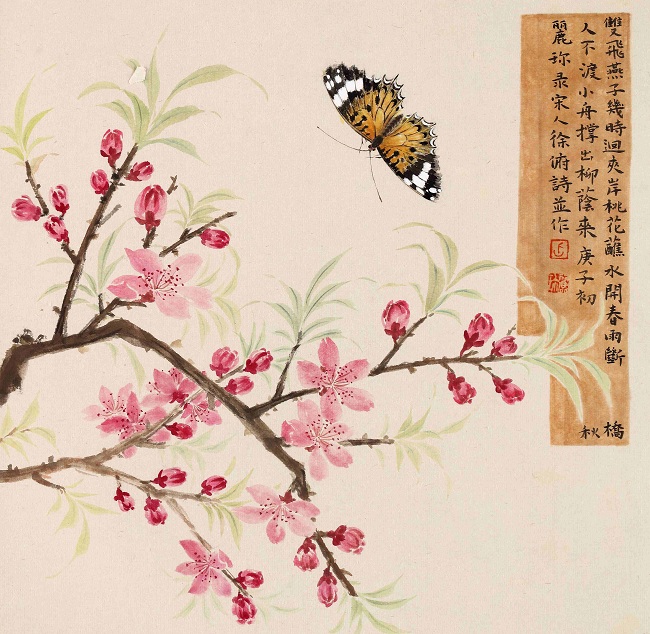 雙飛燕子幾時迴夾岸桃花蘸水開春雨斷橋
人不渡小舟撐出柳蔭來庚子初秋
麗珍录宋人徐俯詩並作